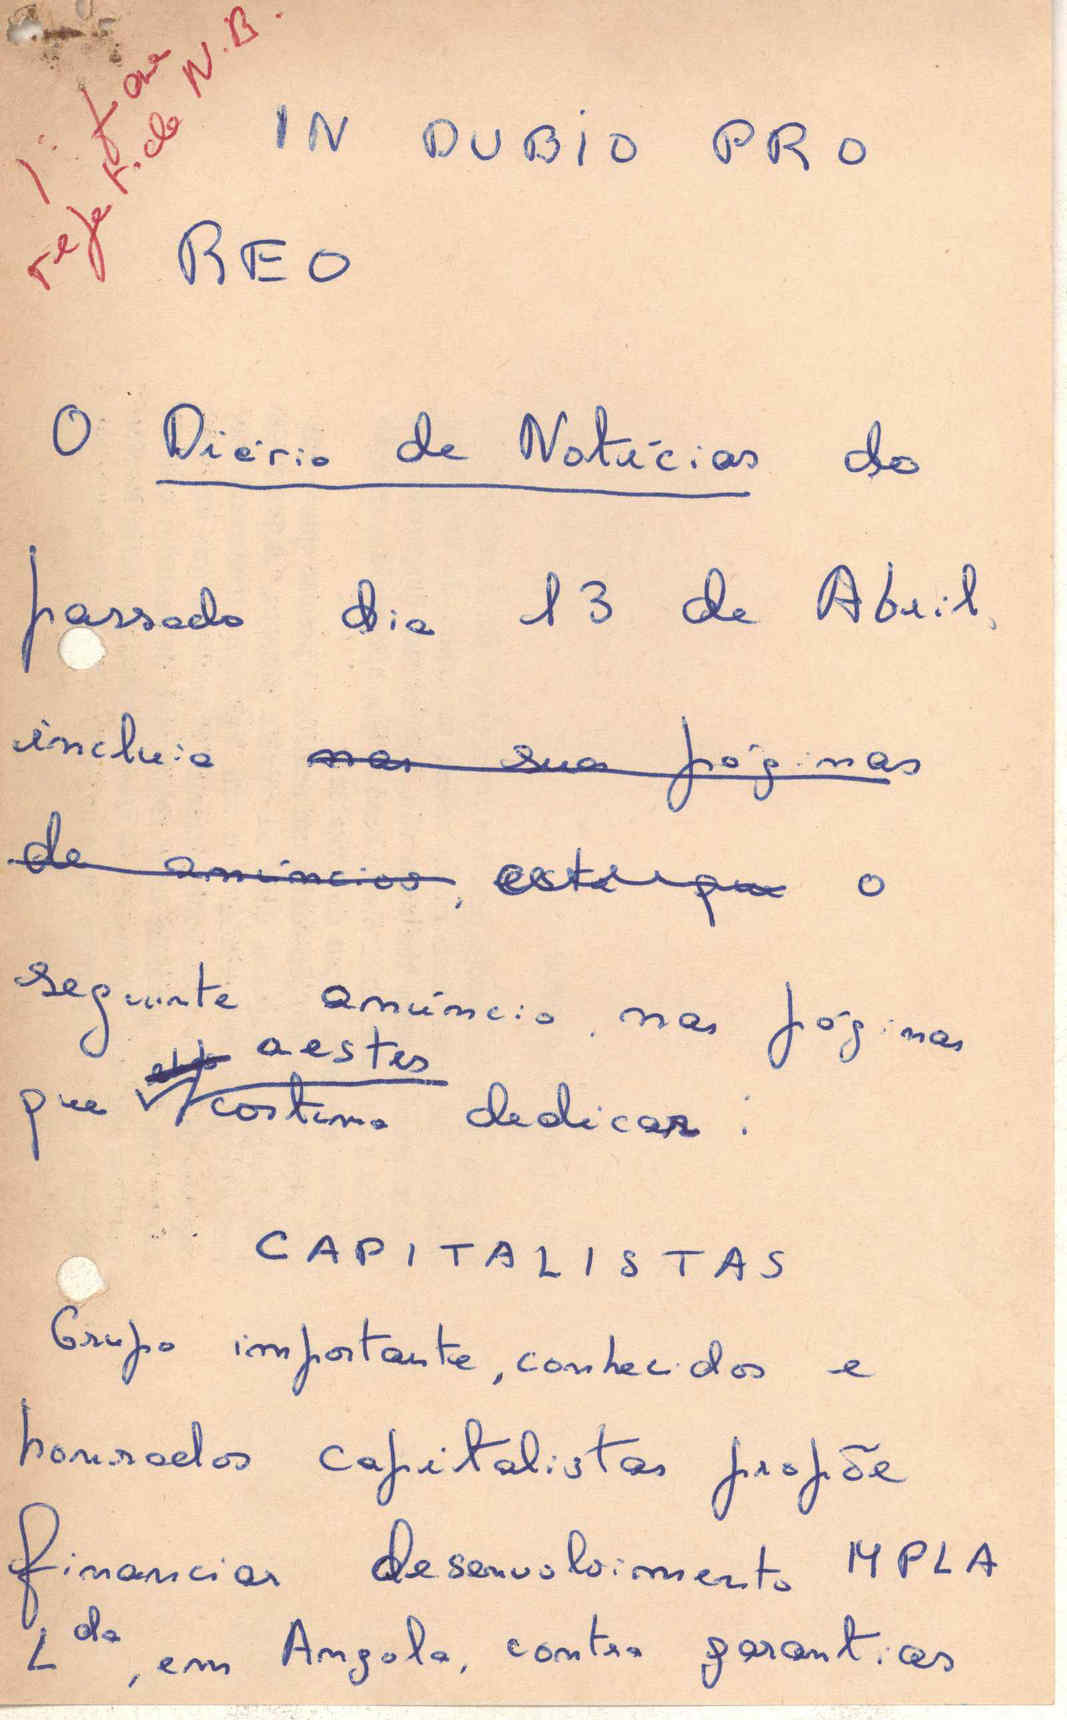 1ª fase
refª F. de N.B.
IN DUBIO PRO
REO
O Diário de Notícias do
passado dia 13 de Abril,
incluia nas sua páginas
de anúncios, este que o
seguinte anúncio, nas páginas
a estes
que costuma dedicar:
CAPITALISTAS
Grupo importante, conhecidos e
honrados capitalistas propõe
financiar desenvolvimento MPLA
Lda, em Angola, contra garantias